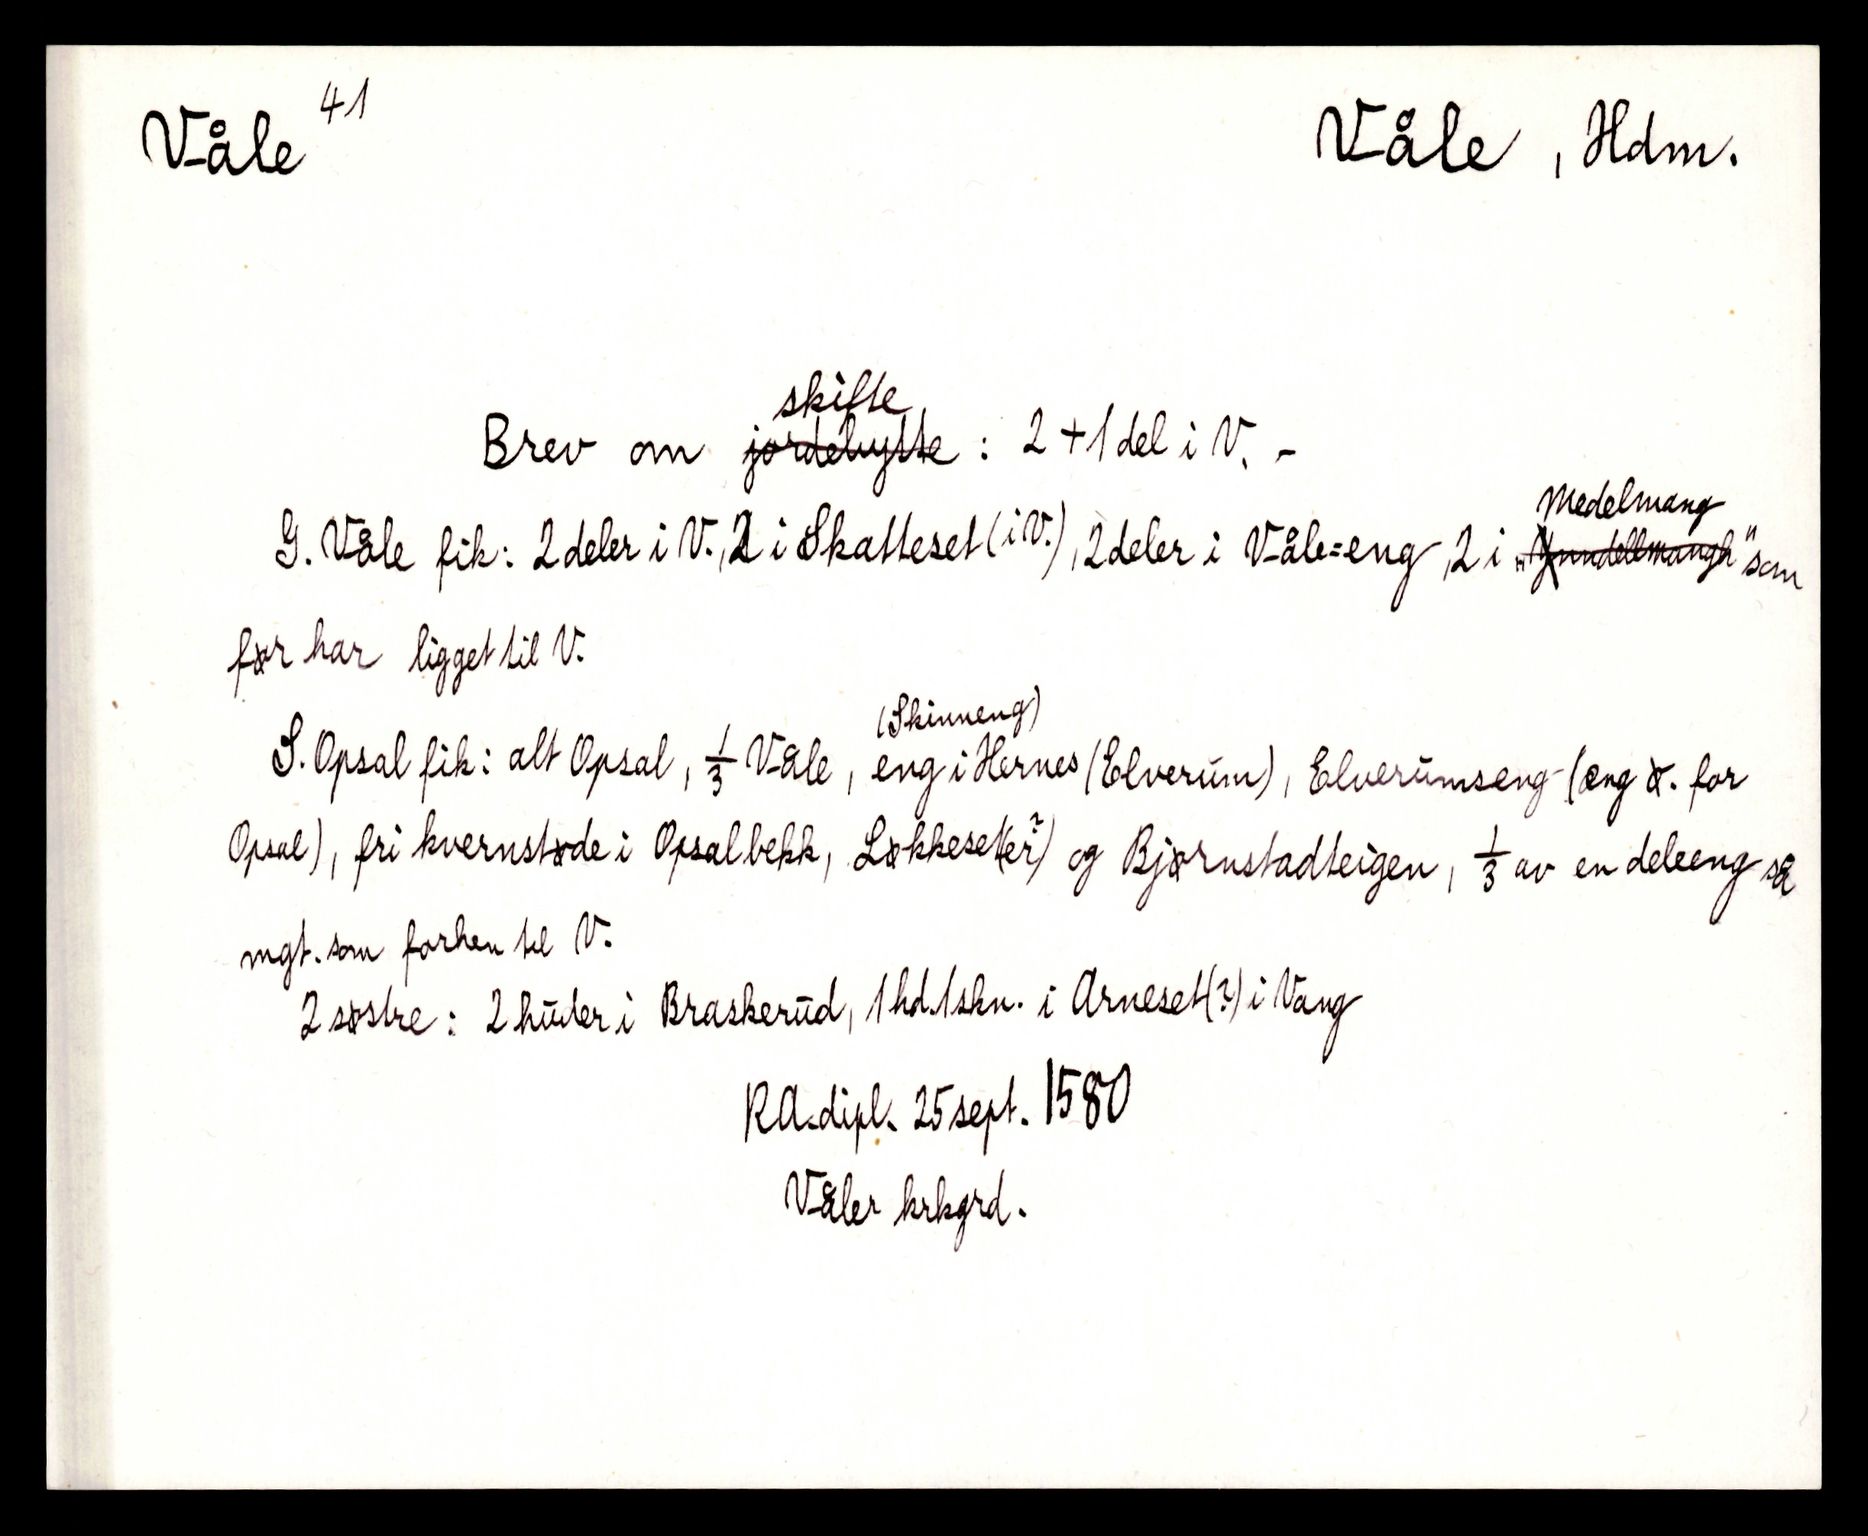 Våle 41 Våle, Hdm.
skifte
Brev om jordebytte : 2 + 1 del i V. -
Medelmang
G. Våle fik: 2 deler i V., 2 i Skatteset (i V.), 2 deler i Våle=eng, 2 i " " som
før har ligget til V.
(Skinneng)
S. Opsal fik: alt Opsal, 1/3 Våle, eng i Hernes (Elverum), Elverumseng (eng ø. for
Opsal), fri kvernstøde i Opsalbekk, Løkkeset(er?) og Bjørnstadteigen, 1/3 av en deleeng så
mgt. som forhen til V.
2 søstre: 2 huder i Braskerud, 1 hd. 1 skn. i Arneset(?) i Vang
RA.dipl. 25 sept. 1580
Våler krkgrd.